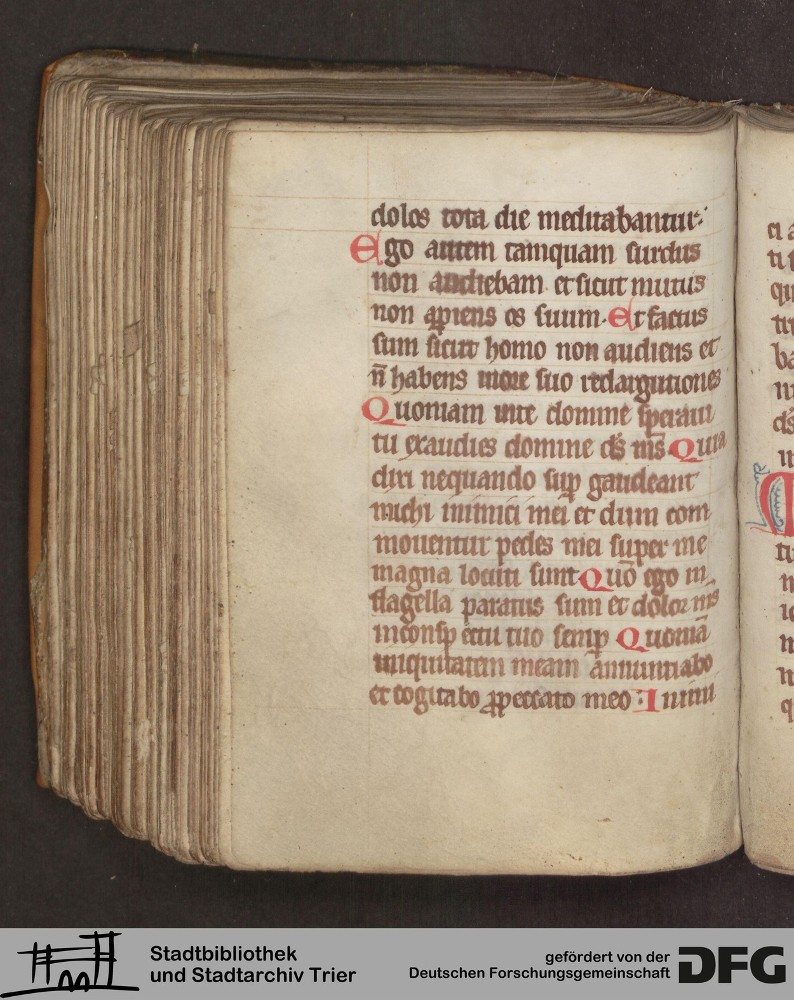 dolos tota die meditabantur:
Ego autem tamquam surdus
non audiebam et sicut mutus
non aꝑiens os suum. Et factus
sum sicut homo non audiens et
n̄ habens in ore suo redargutiones
Quoniam in te domine speraui
tu exaudies domine ds̄ ms̄ Quia
dixi nequando suꝑ gaudeant
michi inimici mei et dum com
mouentur pedes mei super me
magna locuti sunt Quō ego in
flagella paratus sum et dolor ms̄
in conspectu tuo semꝑ Quoniā
iniquitatem meam annuntiabo
et cogitabo ꝓ peccato meo: Inimi
Stadtbibliothek
und Stadtarchiv Trier
gefördert von der
Deutschen Forschungsgemeinschaft
DFG